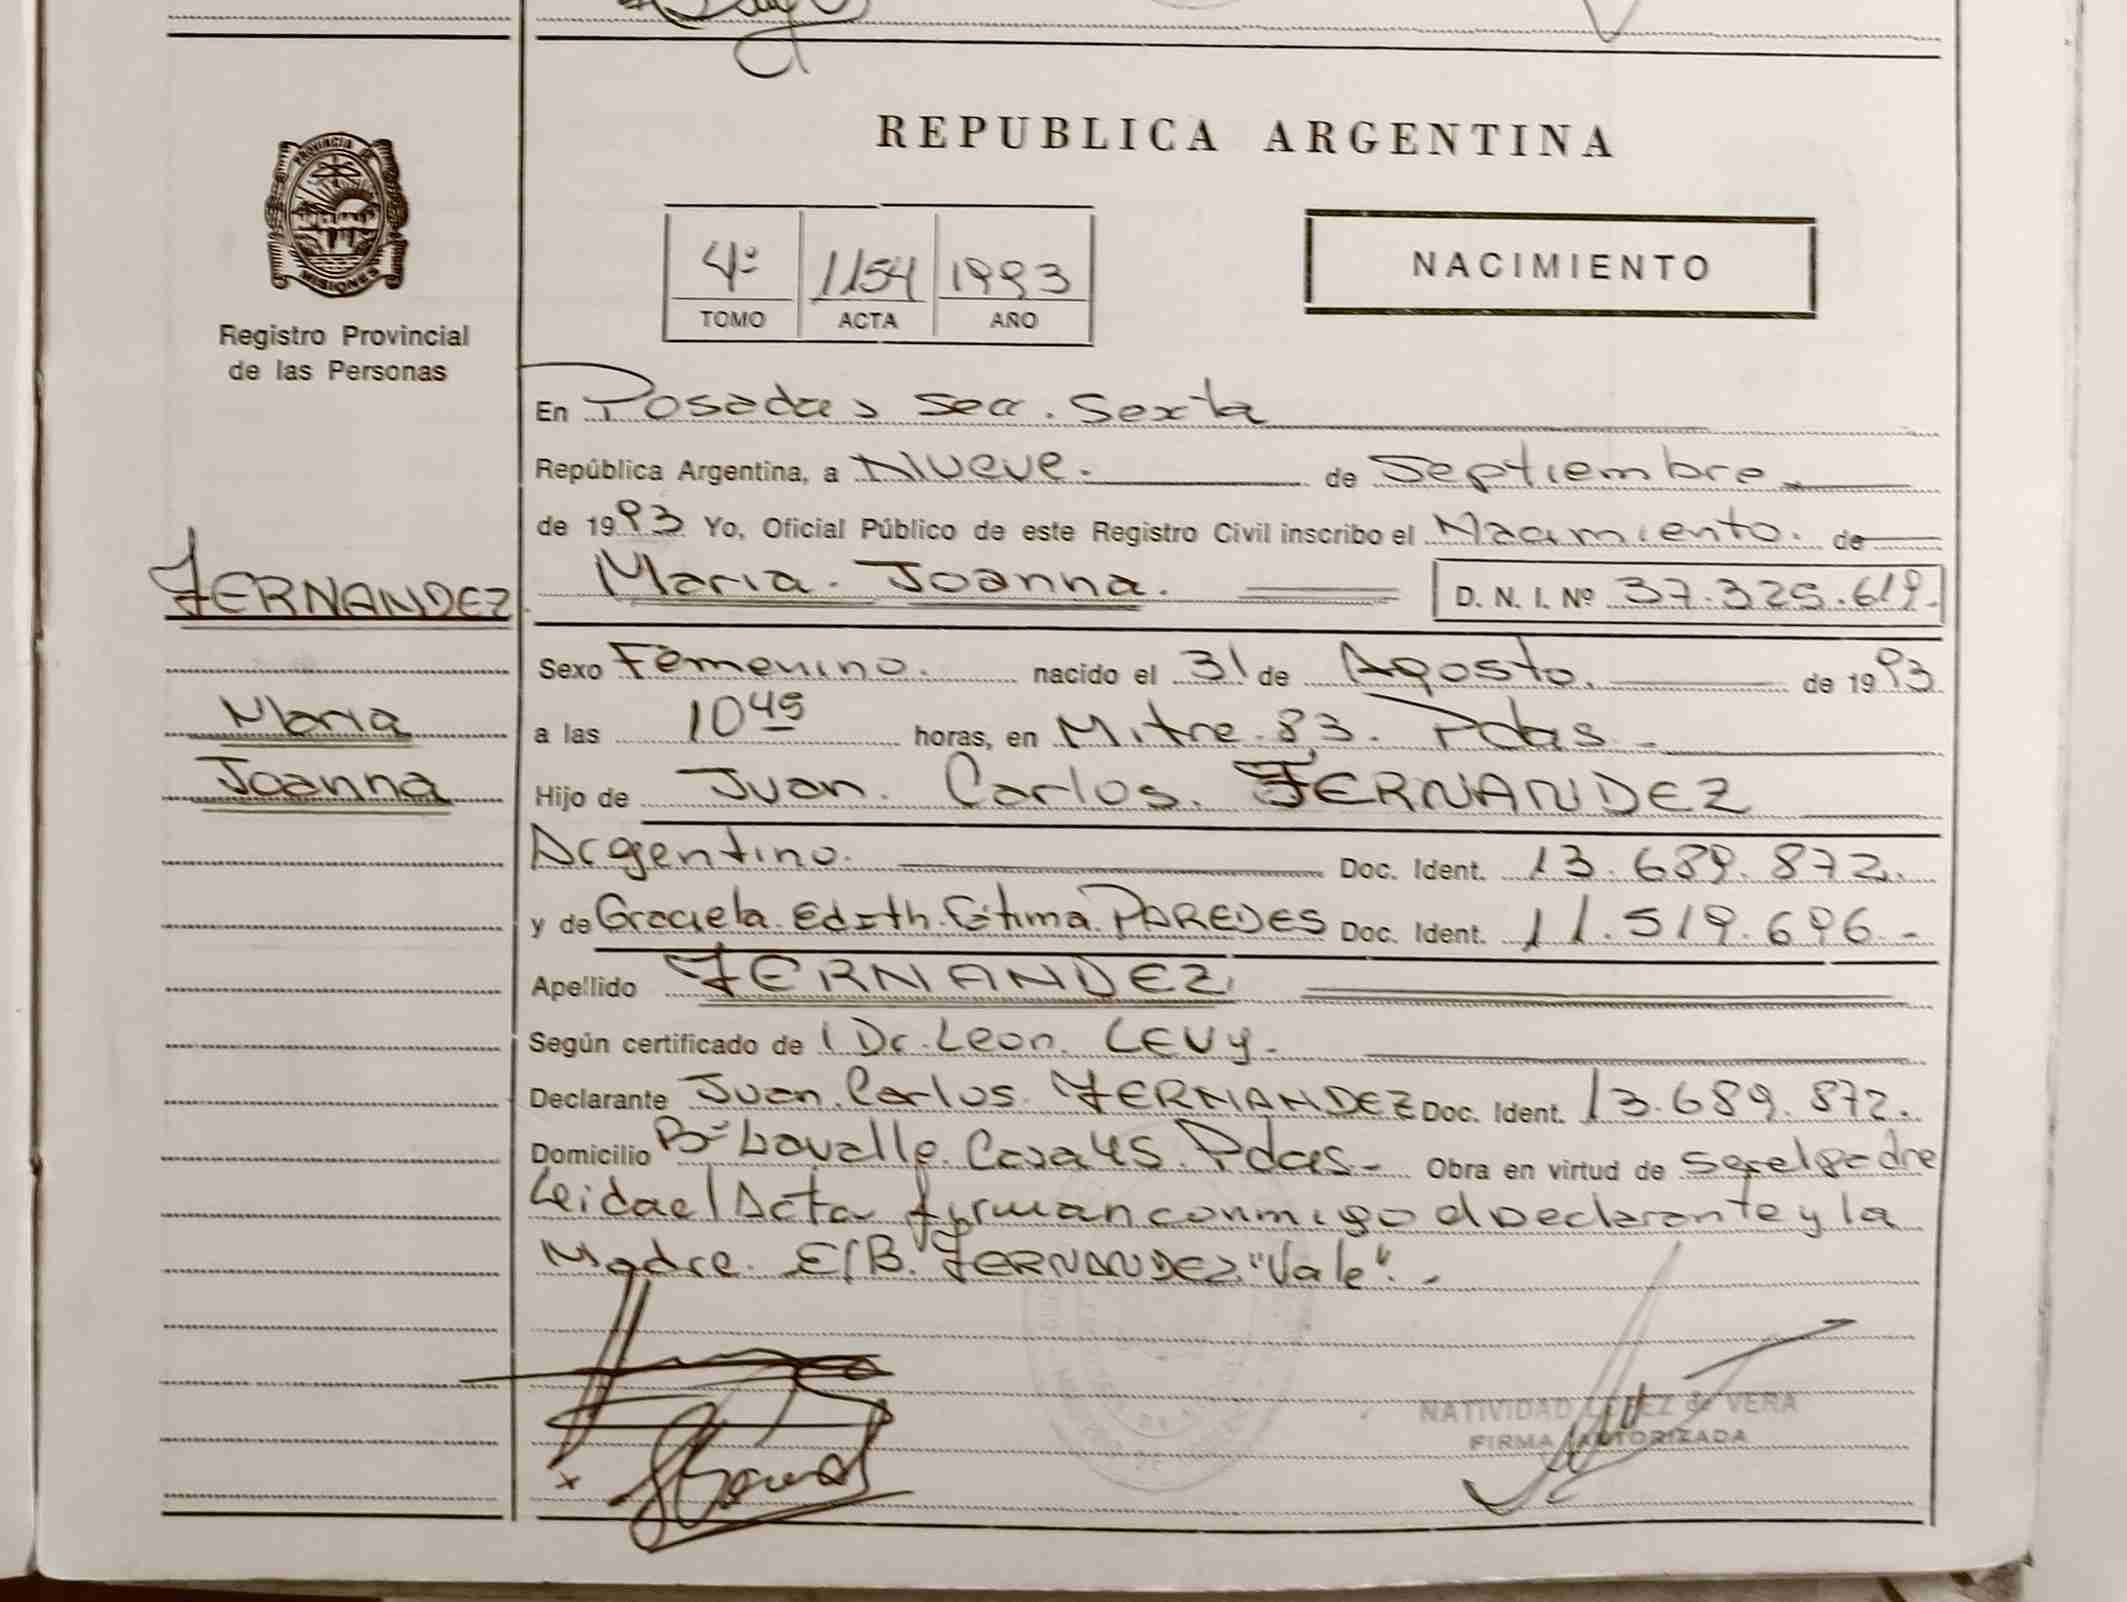 PROVINCIA DE
MISIONES
Registro Provincial
de las Personas
REPUBLICA ARGENTINA
4º 1154 1993
TOMO ACTA AÑO
NACIMIENTO
En Posadas secc. Sexta
República Argentina, a Nueve. de Septiembre
de 1993 Yo, Oficial Público de este Registro Civil inscribo el Nacimiento. de
FERNANDEZ
Maria. Joanna. D. N. I. Nº 37.325.619.
Sexo Femenino. nacido el 31 de Agosto. de 1993
Maria
a las 10 45 horas, en Mitre. 83. Pdas.
Joanna
Hijo de Juan. Carlos. FERNANDEZ
Argentino. Doc. Ident. 13.689.872.
y de Graciela. Edith. Fátima. PAREDES Doc. Ident. 11.519.696.-
Apellido FERNANDEZ
Según certificado de Dr. Leon. LEVY.
Declarante Juan. Carlos. FERNANDEZ Doc. Ident. 13.689.872.
Domicilio Bº Lavalle. Casa 45. Pdas- Obra en virtud de ser el padre
Leida el Acta firman conmigo el Declarante y la
Madre. E/B. FERNANDEZ. "Vale".-
NATIVIDAD LOPEZ de VERA
FIRMA AUTORIZADA